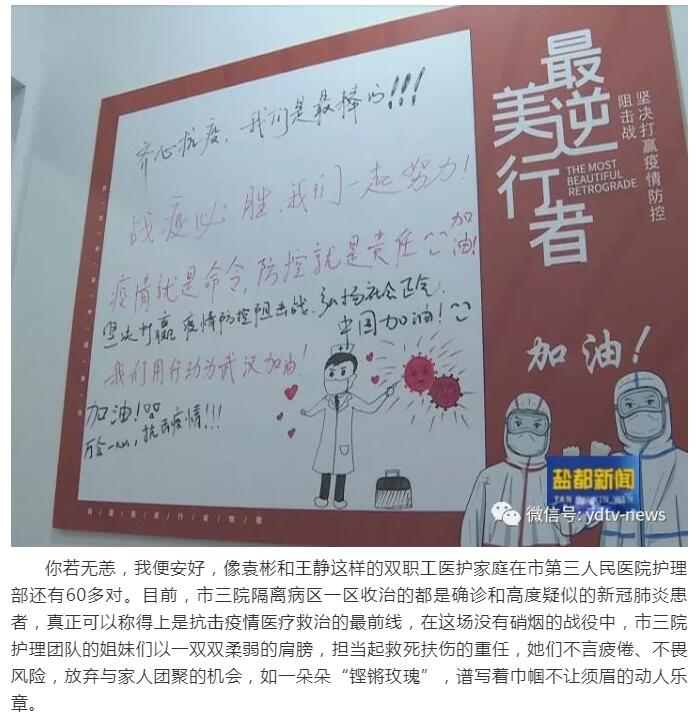 齐心抗疫，我们是最棒的!!!
战疫必胜，我们一起努力！
疫情就是命令，防控就是责任
加油！
坚决打赢疫情防控阻击战，弘扬社会正气，
中国加油！
我们用行动为武汉加油！
加油！
万众一心，抗击疫情!!!
最美逆行者
THE MOST
BEAUTIFUL
RETROGRADE
坚决打赢疫情防控
阻击战
加油！
向最美逆行者致敬
盐都新闻
YAN DU XIN WEN
微信号: ydtv-news
你若无恙，我便安好，像袁彬和王静这样的双职工医护家庭在市第三人民医院护理
部还有60多对。目前，市三院隔离病区一区收治的都是确诊和高度疑似的新冠肺炎患
者，真正可以称得上是抗击疫情医疗救治的最前线，在这场没有硝烟的战役中，市三院
护理团队的姐妹们以一双双柔弱的肩膀，担当起救死扶伤的重任，她们不言疲倦、不畏
风险，放弃与家人团聚的机会，如一朵朵“铿锵玫瑰”，谱写着巾帼不让须眉的动人乐
章。